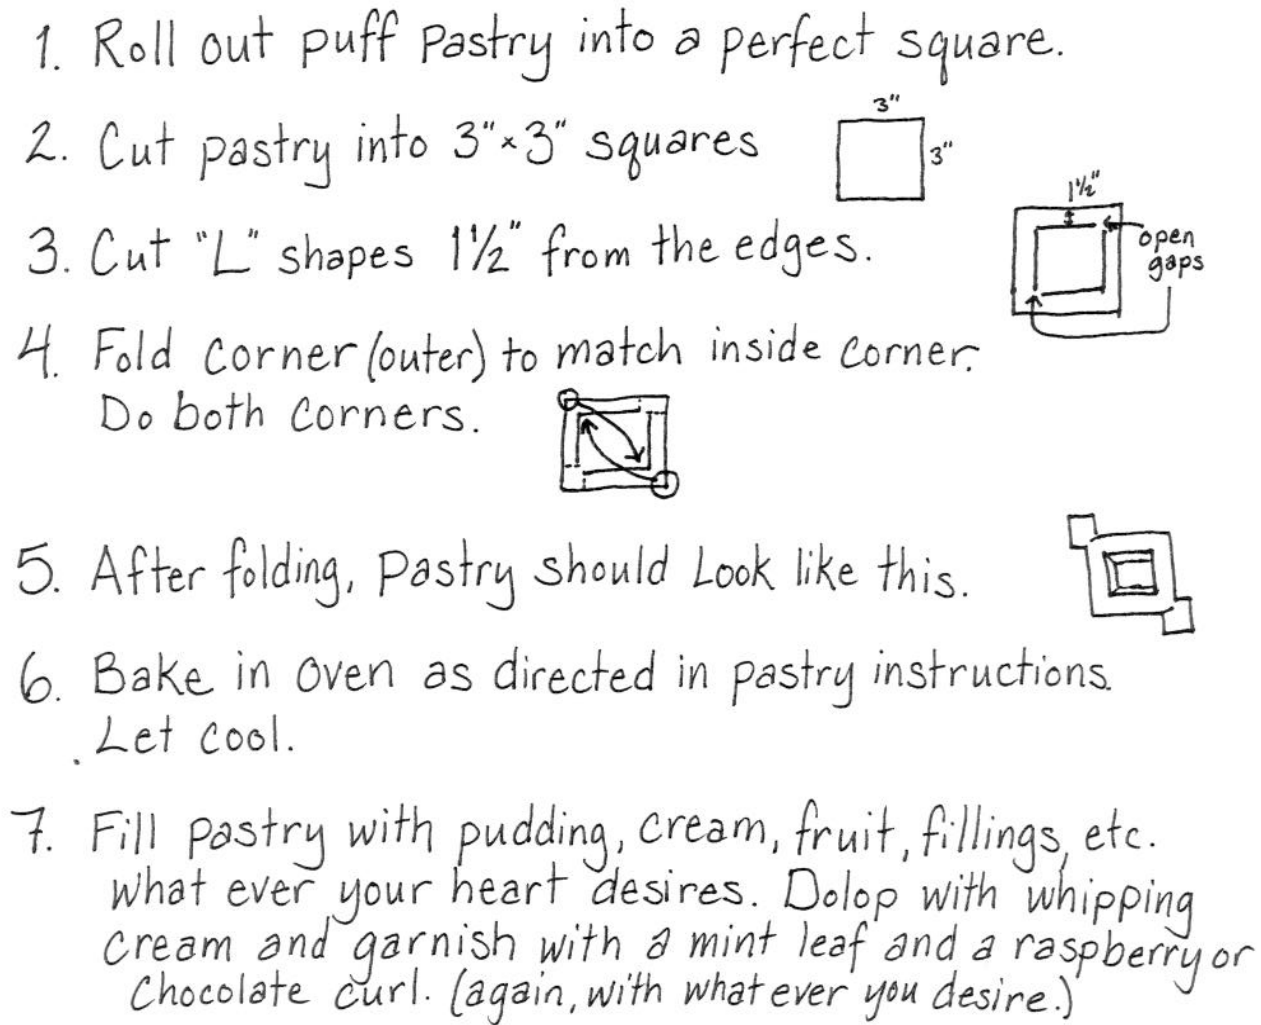 1. Roll out puff pastry into a perfect square.
2. Cut pastry into 3"×3" squares
3"
3"
3. Cut "L" shapes 1½" from the edges.
1½"
open
gaps
4. Fold corner (outer) to match inside corner.
Do both corners.
5. After folding, pastry should Look like this.
6. Bake in oven as directed in pastry instructions.
Let cool.
7. Fill pastry with pudding, cream, fruit, fillings, etc.
what ever your heart desires. Dolop with whipping
cream and garnish with a mint leaf and a raspberry or
chocolate curl. (again, with what ever you desire.)